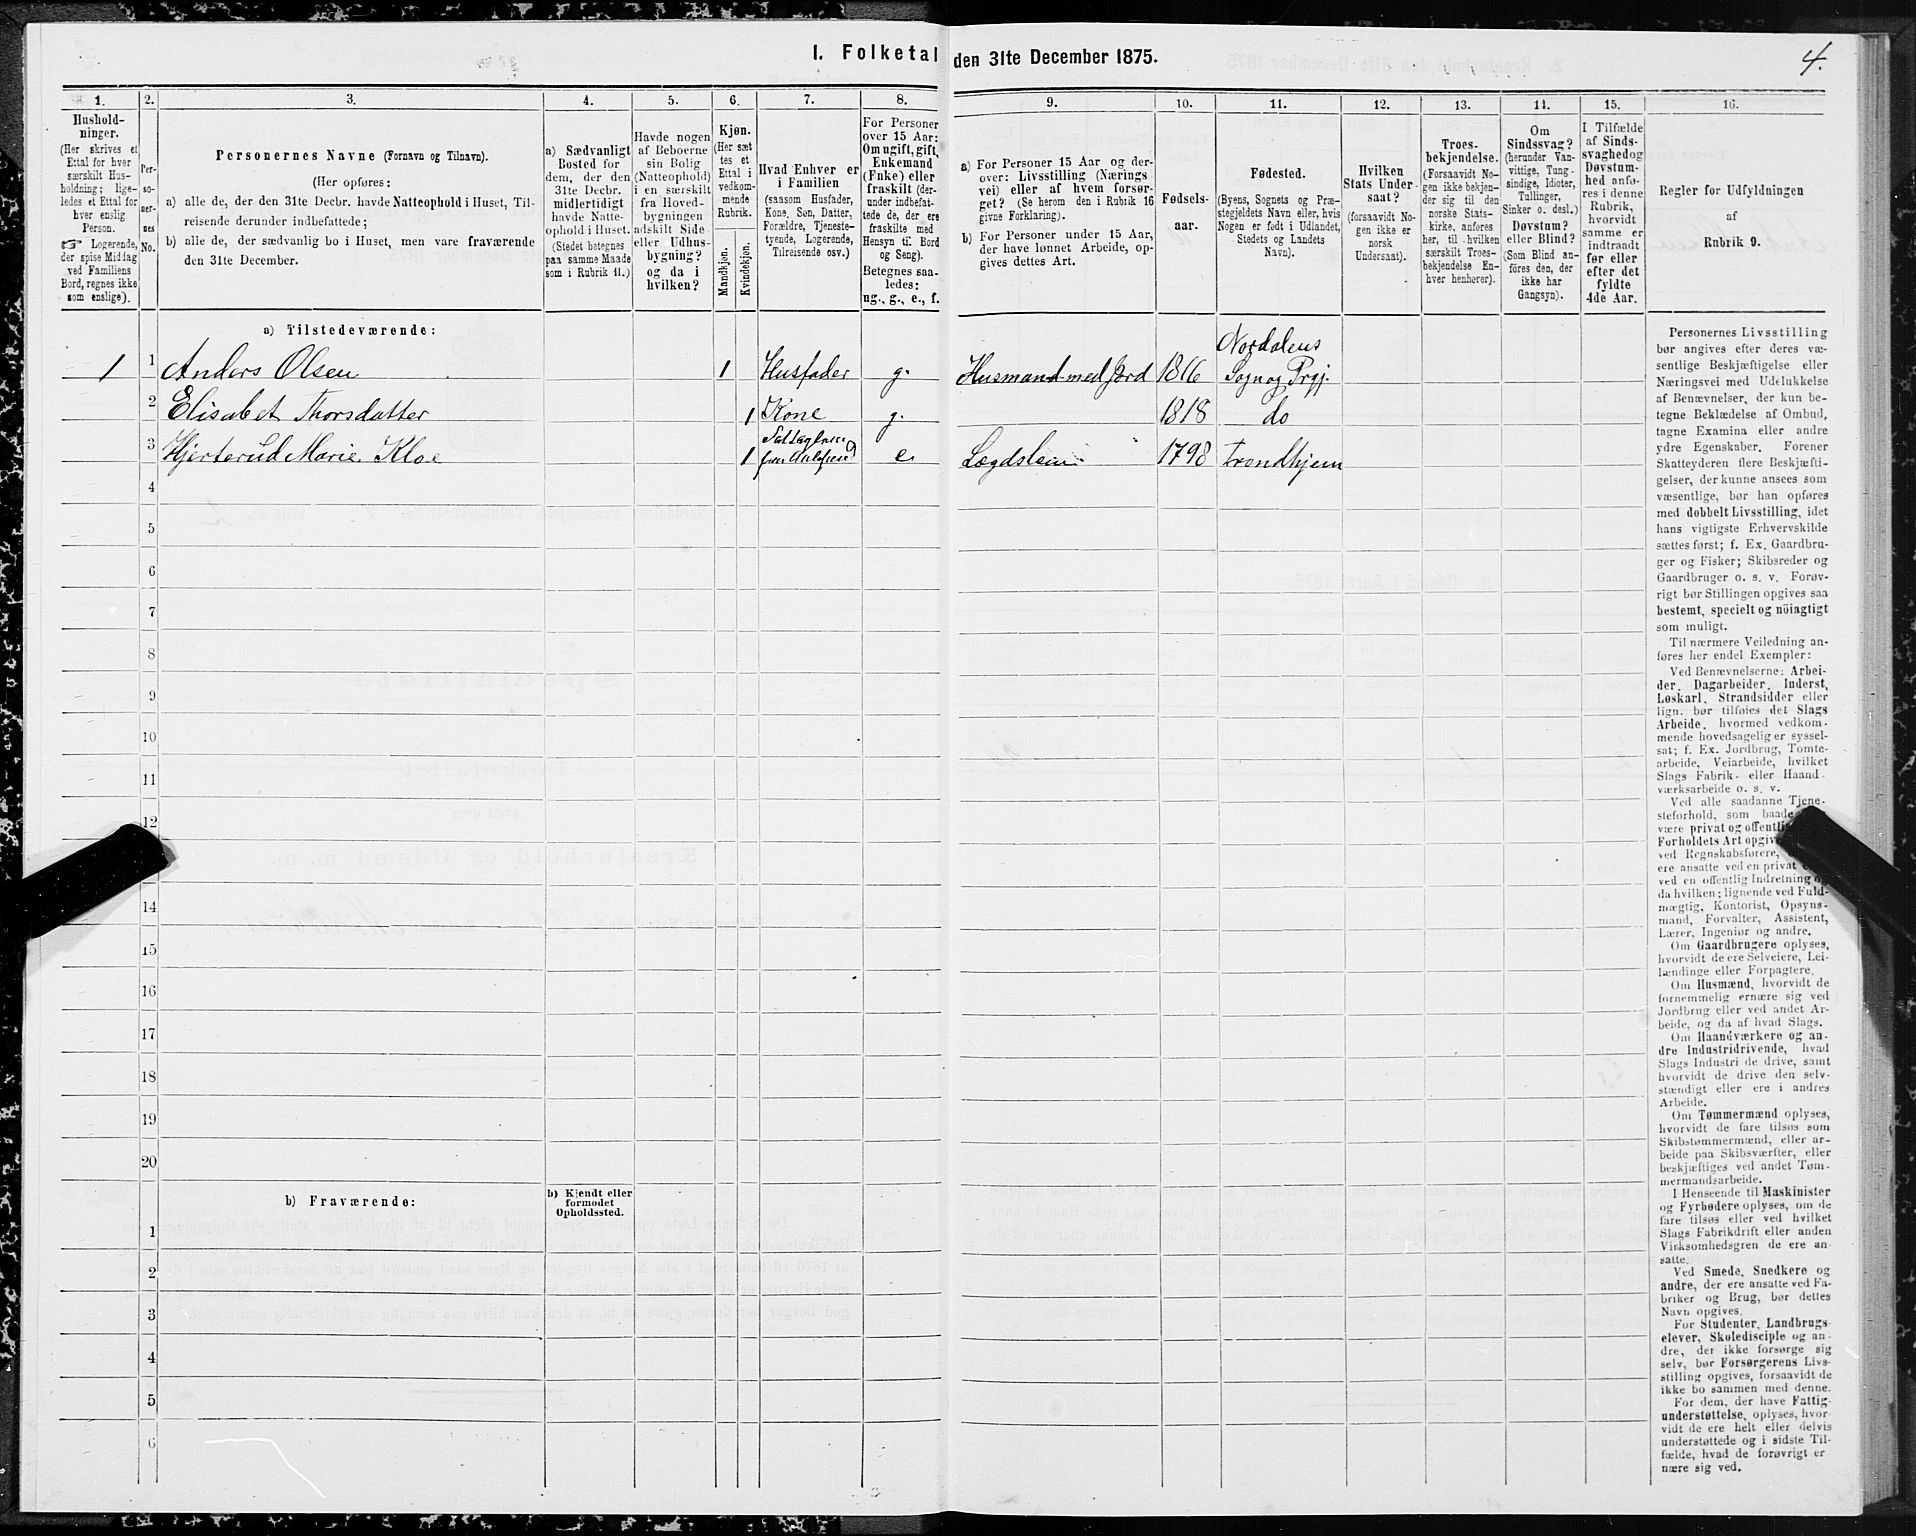 I. Folketal den 31te December 1875.
4.
1.
Hushold-
ninger.
(Her skrives et
Ettal for hver
særskilt Hus-
holdning; lige-
ledes et Ettal for
hver enslig
Person.
☞ Logerende,
der spise Middag
ved Familiens
Bord, regnes ikke
som enslige).
2.
Per-
so-
ner-
nes
No.
3.
Personernes Navne (Fornavn og Tilnavn).
(Her opføres:
a) alle de, der den 31te Decbr. havde Natteophold i Huset, Til-
reisende derunder indbefattede;
b) alle de, der sædvanlig bo i Huset, men vare fraværende
den 31te December.
4.
a) Sædvanligt
Bosted for
dem, der den
31te Decbr.
midlertidigt
havde Natte-
ophold i Huset.
(Stedet betegnes
paa samme Maade
som i Rubrik 11.)
5.
Havde nogen
af Beboerne
sin Bolig
(Natteophold)
i en særskilt
fra Hoved-
bygningen
adskilt Side-
eller Udhus-
bygning?
og da i
hvilken?
6.
Kjøn.
(Her sæt
tes et
Ettal i
vedkom-
mende
Rubrik.
Mandkjøn.
Kvindekjøn.
7.
Hvad Enhver er
i Familien
(saasom Husfader,
Kone, Søn, Datter,
Forældre, Tjeneste-
tyende, Logerende,
Tilreisende osv.)
8.
For Personer
over 15 Aar:
Om ugift, gift,
Enkemand
(Enke) eller
fraskilt (der-
under indbefat-
tede de, der ere
fraskilte med
Hensyn til Bord
og Seng).
Betegnes saa-
ledes:
ug., g., e., f.
9.
a) For Personer 15 Aar og der-
over: Livsstilling (Nærings
vei) eller af hvem forsør-
get? (Se herom den i Rubrik 16
givne Forklaring).
b) For Personer under 15 Aar,
der have lønnet Arbeide, op-
gives dettes Art.
10.
Fødsels-
aar.
11.
Fødested.
(Byens, Sognets og Præ-
stegjeldets Navn eller, hvis
Nogen er født i Udlandet,
Stedets og Landets
Navn).
12.
Hvilken
Stats Under-
saat?
(forsaavidt No-
gen ikke er
norsk
Undersaat).
13.
Troes-
bekjendelse.
(Forsaavidt No-
gen ikke bekjen-
der sig til den
norske Stats-
kirke, anføres
her, til hvilken
særskilt Troes-
bekjendelse En-
hver henhører).
14.
Om
Sindssvag?
(herunder Van-
vittige, Tung-
sindige, Idioter,
Tullinger,
Sinker o. desl.)
Døvstum?
eller Blind?
(Som Blind an-
føres den, der
ikke har
Gangsyn).
15.
I Tilfælde
af Sinds-
svaghed og
Døvstum-
hed anfø-
res i denne
Rubrik,
hvorvidt
samme er
indtraadt
før eller
efter det
fyldte
4de Aar.
16.
Regler for Udfyldningen
af
Rubrik 9.
a) Tilstedeværende:
1 1 Anders Olsen 1 Husfader g. Husmand med Jord 1816 Nordalens
Sogn og Prgj.
2 Elisabet Thorsdatter 1 Kone g. 1818 do
3 Hjerterud Marie Kloe 1 e. Lægdslem 1798 Trondhjem
4
5
6
7
8
9
10
11
12
14
15
16
17
18
19
20
b) Fraværende:
b) Kjendt eller
formodet
Opholdssted.
1
2
3
4
5
6
Personernes Livsstilling
bør angives efter deres væ-
sentlige Beskjæftigelse eller
Næringsvei med Udelukkelse
af Benævnelser, der kun be-
tegne Beklædelse af Ombud,
tagne Examina eller andre
ydre Egenskaber. Forener
Skatteyderen flere Beskjæfti-
gelser, der kunne ansees som
væsentlige, bør han opføres
med dobbelt Livsstilling, idet
hans vigtigste Erhvervskilde
sættes først; f. Ex. Gaardbru-
ger og Fisker; Skibsreder og
Gaardbruger o. s. v. Forøv-
rigt bør Stillingen opgives saa
bestemt, specielt og nöiagtigt
som muligt.
Til nærmere Veiledning an-
føres her endel Exempler:
Ved Benævnelserne: Arbei-
der, Dagarbeider, Inderst,
Løskarl, Strandsidder eller
lign. bør tilføies det Slags
Arbeide, hvormed vedkom-
mende hovedsagelig er syssel-
sat; f. Ex. Jordbrug, Tomte-
arbeide, Veiarbeide, hvilket
Slags Fabrik- eller Haand-
værksarbeide o. s. v.
Ved alle saadanne Tjene-
steforhold, som baade
være privat og offentli
Forholdets Art opgiv
ved Regnskabsførere,
ere ansatte ved en privat
ved en offentlig Indretning og
da hvilken; lignende ved Fuld-
mægtig, Kontorist, Opsyns-
mand, Forvalter, Assistent,
Lærer, Ingeniør og andre.
Om Gaardbrugere oplyses,
hvorvidt de ere Selveiere, Lei-
lændinge eller Forpagtere.
Om Husmænd, hvorvidt de
fornemmelig ernære sig ved
Jordbrug eller ved andet Ar-
beide, og da af hvad Slags.
Om Haandværkere og an-
dre Industridrivende, hvad
Slags Industri de drive, samt
hvorvidt de drive den selv-
stændigt eller ere i andres
Arbeide.
Om Tømmermænd oplyses,
hvorvidt de fare tilsøs som
Skibstømmermænd, eller ar-
beide paa Skibsværfter, eller
beskjæftiges ved andet Tøm-
mermandsarbeide.
I Henseende til Maskinister
og Fyrbødere oplyses, om de
fare tilsøs eller ved hvilket
Slags Fabrikdrift eller anden
Virksomhedsgren de ere an-
satte.
Ved Smede, Snedkere og
andre, der ere ansatte ved Fa-
briker og Brug, bør dettes
Navn opgives.
For Studenter, Landbrugs-
elever, Skoledisciple og an-
dre, der ikke forsørge sig
selv, bør Forsørgerens Livs-
stilling opgives, forsaavidt de
ikke bo sammen med denne.
For dem, der have Fattig-
understøttelse, oplyses, hvor-
vidt de ere helt eller delvis
understøttede og i sidste Til-
fælde, hvad de forøvrigt er-
nære sig ved.